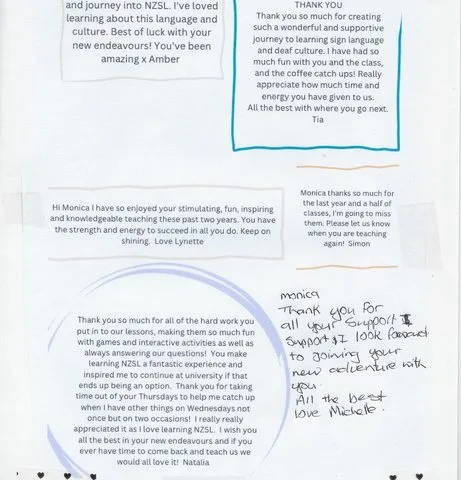 and journey into NZSL. I've loved
learning about this language and
culture. Best of luck with your
new endeavours! You've been
amazing x Amber
THANK YOU
Thank you so much for creating
such a wonderful and supportive
journey to learning sign language
and deaf culture. I have had so
much fun with you and the class,
and the coffee catch ups! Really
appreciate how much time and
energy you have given to us.
All the best with where you go next.
Tia
Hi Monica I have so enjoyed your stimulating, fun, inspiring
and knowledgeable teaching these past two years. You have
the strength and energy to succeed in all you do. Keep on
shining.  Love Lynette
Monica thanks so much for
the last year and a half of
classes, I'm going to miss
them. Please let us know
when you are teaching
again!  Simon
Thank you so much for all of the hard work you
put in to our lessons, making them so much fun
with games and interactive activities as well as
always answering our questions!  You make
learning NZSL a fantastic experience and
inspired me to continue at university if that
ends up being an option.  Thank you for taking
time out of your Thursdays to help me catch up
when I have other things on Wednesdays not
once but on two occasions!  I really really
appreciated it as I love learning NZSL.  I wish you
all the best in your new endeavours and if you
ever have time to come back and teach us we
would all love it!  Natalia
monica
Thank you for
all your support
support & I look forward
to joining your
new adventure with
you.
All the best
love Michelle.